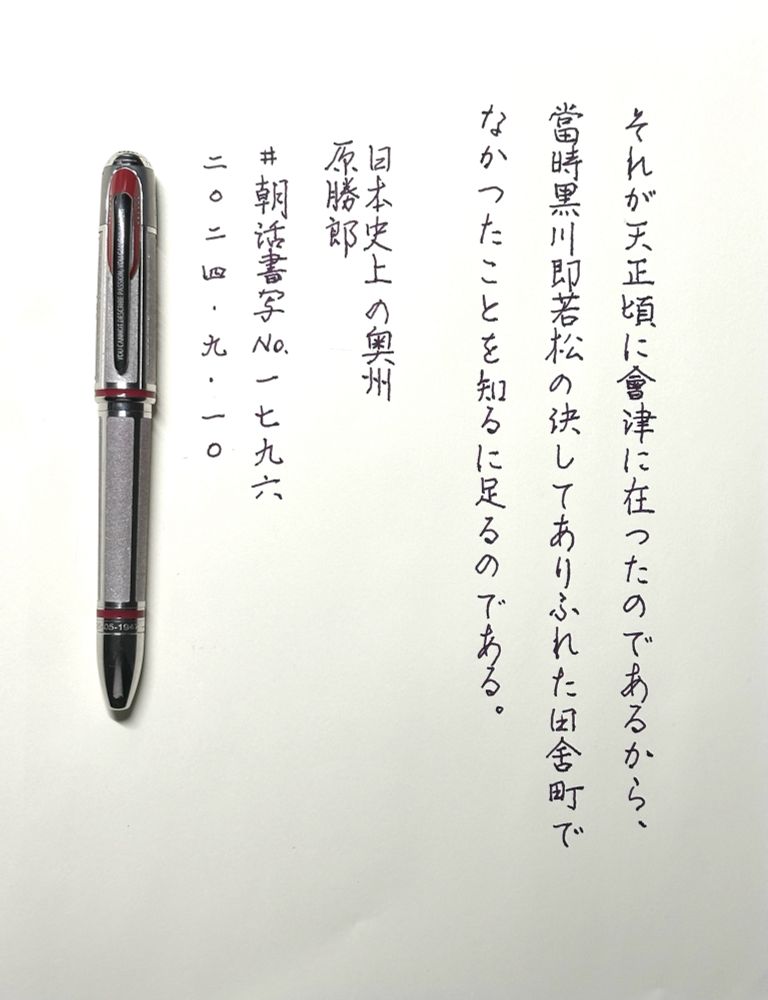 それが天正頃に會津に在つたのであるから、
當時黒川即若松の決してありふれた田舎町で
なかつたことを知るに足るのである。
日本史上の奥州
原勝郎
#朝活書写No.一七九六
二〇二四.九.一〇
YOU CANNOT DESCRIBE PASSION, YOU CAN
05-194